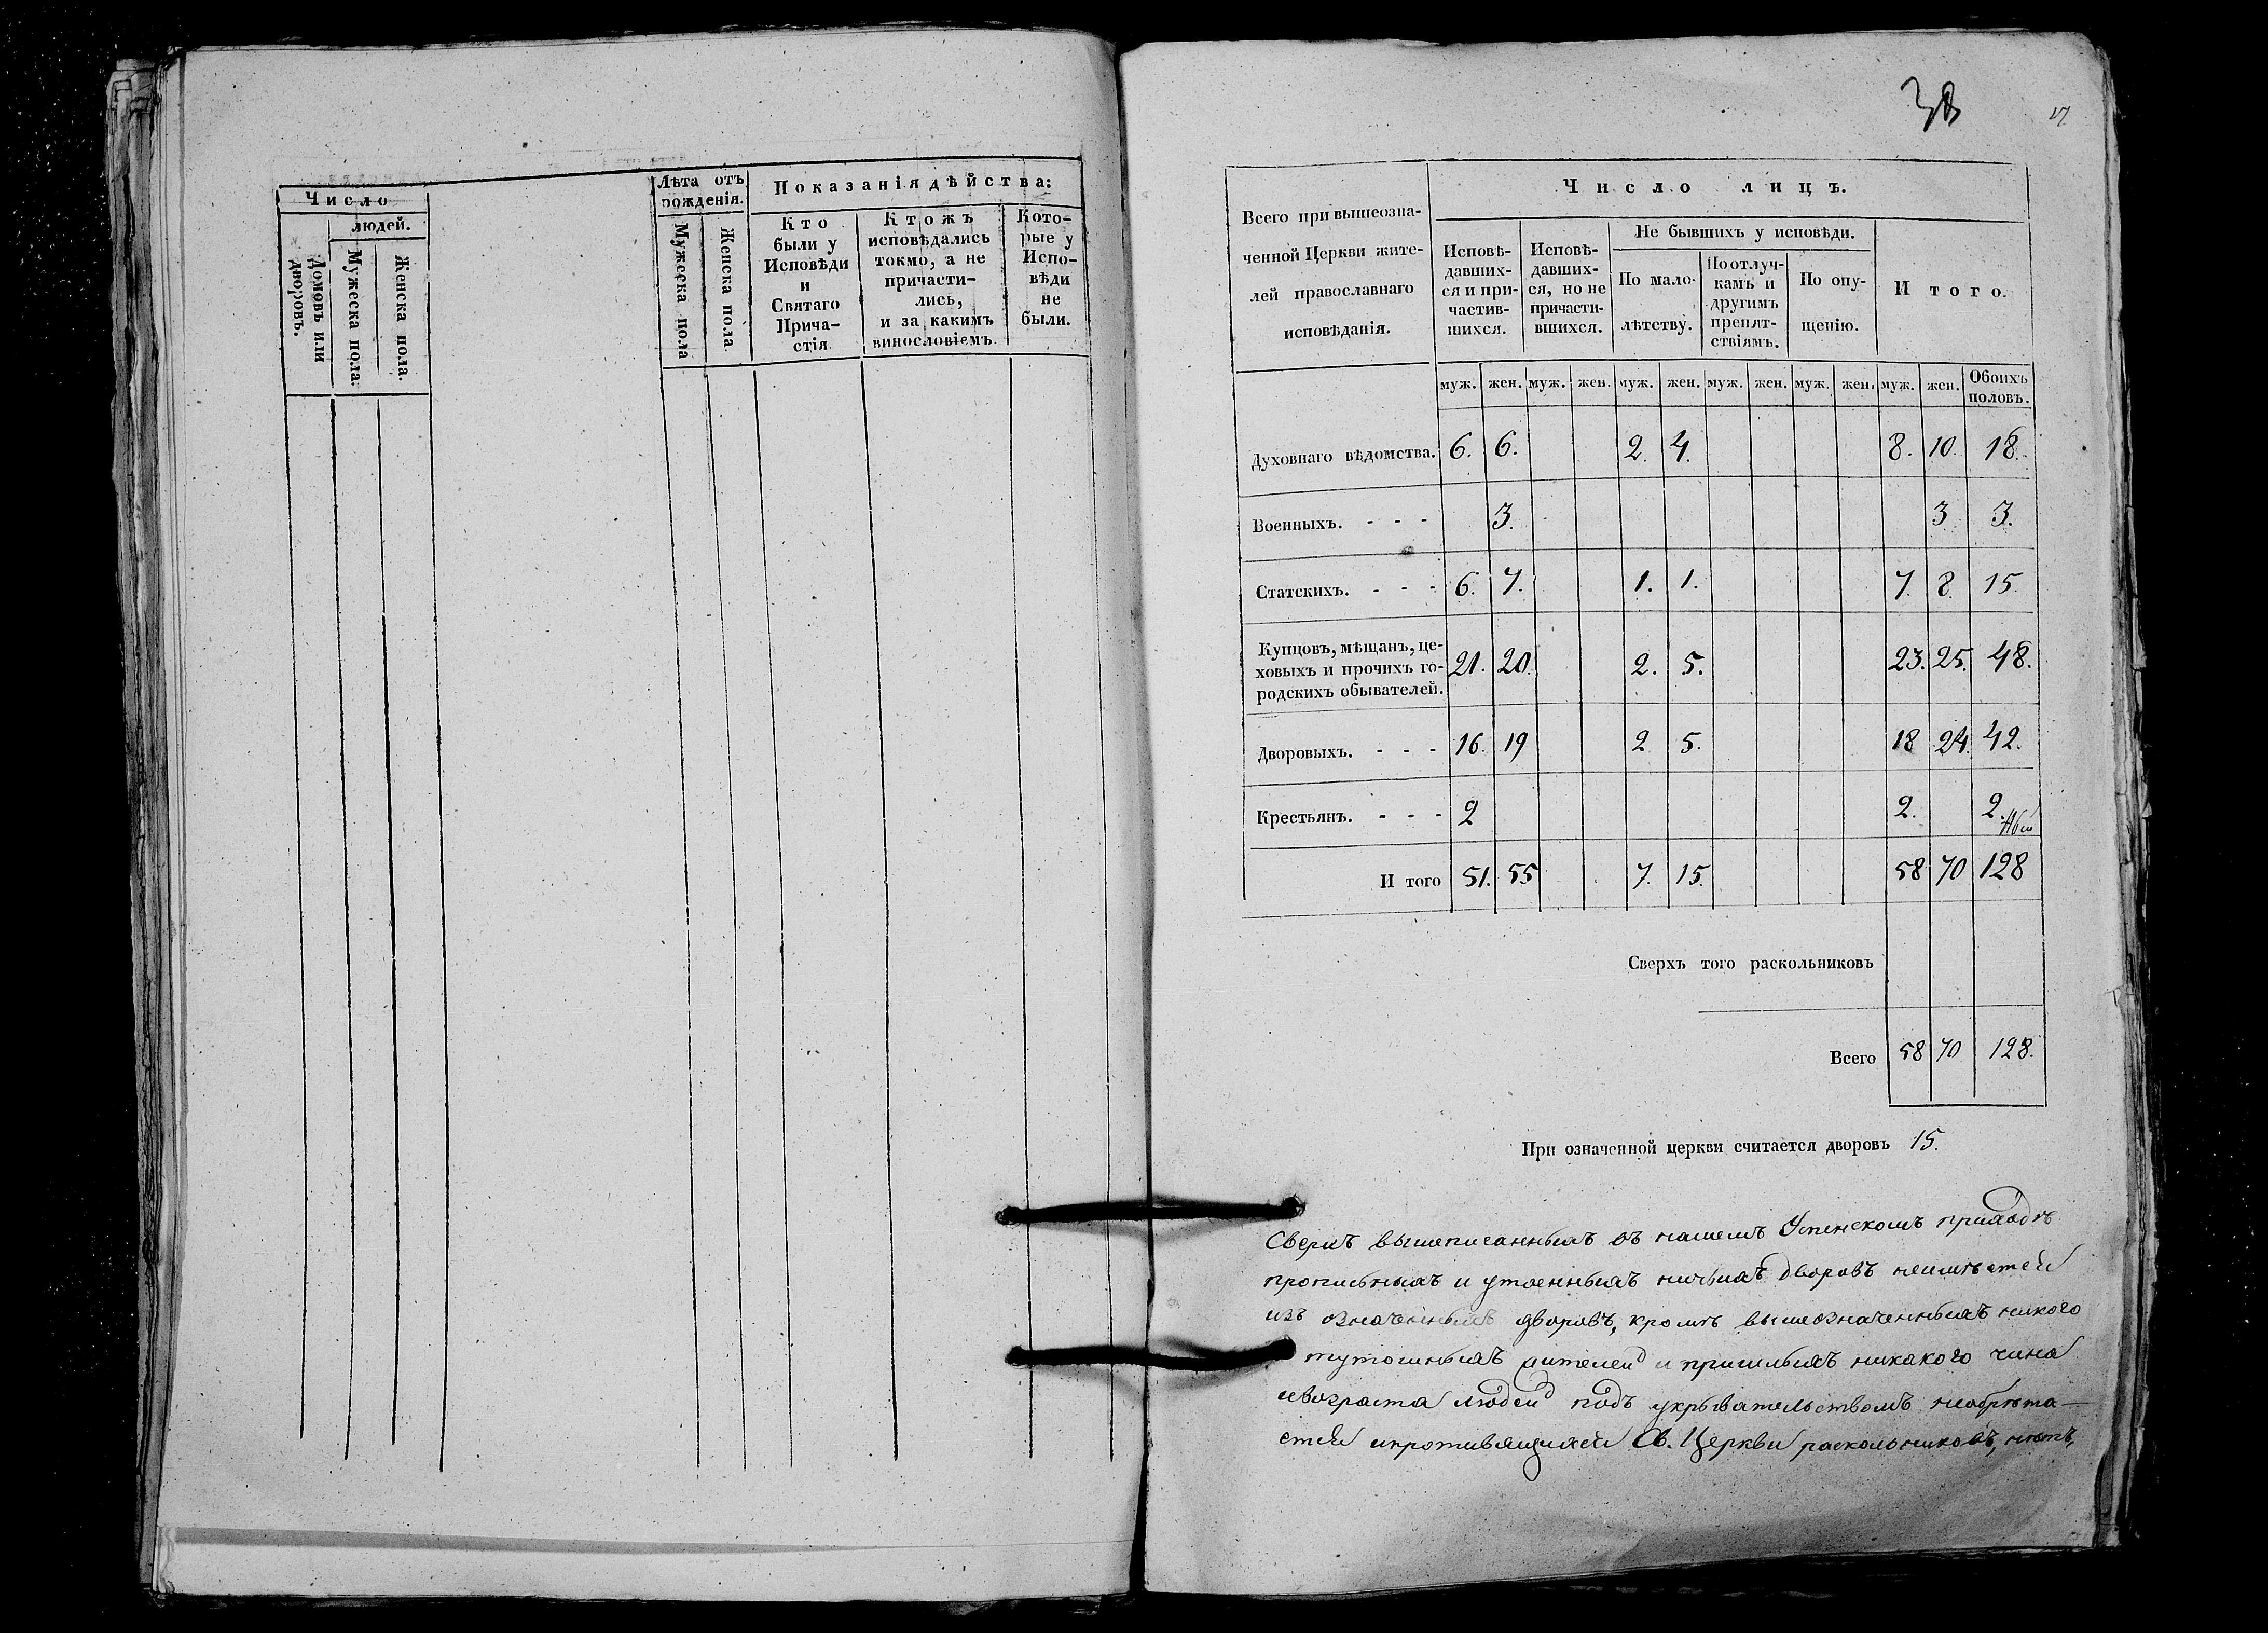 Число
людей.
Домовъ или дворовъ.
Мужеска пола.
Женска пола.
Лѣта отъ рожденія.
Мужеска пола
Женска пола
Показанія дѣйства:
Кто были у Исповѣди и Святаго Прича-
стія
Ктожъ исповѣдались токмо, а не причасти-
лись, и за какимъ винословіемъ.
Кото-
рые у Испо-
вѣди не были.
38
17
Всего при вышеозна-
ченной Церкви жите-
лей православнаго
исповѣданія.
Число лицъ.
Исповѣ-
давших-
ся и при-
частив-
шихся.
Исповѣ-
давших-
ся, но не
причасти-
вшихся.
Не бывшихъ у исповѣди.
По мало-
лѣтству.
По отлуч-
камъ и
другимъ
препят-
ствіямъ.
По опу-
щенію.
Итого.
муж. жен. муж. жен. муж. жен. муж. жен. муж. жен. муж. жен. Обоихъ половъ.
Духовнаго вѣдомства. 6. 6. 2. 4. 8. 10. 18.
Военныхъ. - - - 3. 3 3.
Статскихъ. - - - 6. 7. 1. 1. 7. 8. 15.
Купцовъ, мѣщанъ, це-
ховыхъ и прочихъ го-
родскихъ обывателей. 21. 20. 2. 5. 23. 25. 48.
Дворовыхъ. - - - 16. 19 2 5. 18 24. 42.
Крестьянъ. - - - 2 2. 2.
И того 51. 55 7. 15. 58 70 128
Сверхъ того раскольниковъ
Всего 58 70 128.
При означенной церкви считается дворовъ 15.
Сверхъ вышеписанныхъ въ нашемъ Успенскомъ приходѣ
прописныхъ и утаенныхъ ничьихъ дворовъ неимѣется
изъ означенныхъ дворовъ, кромѣ вышеозначенныхъ никого
тутошныхъ жителей и пришлыхъ никакого чина
ивозраста людей подъ укрывательствомъ необрѣта-
ется ипротивящихся Св. Церкви раскольниковъ, нѣтъ,